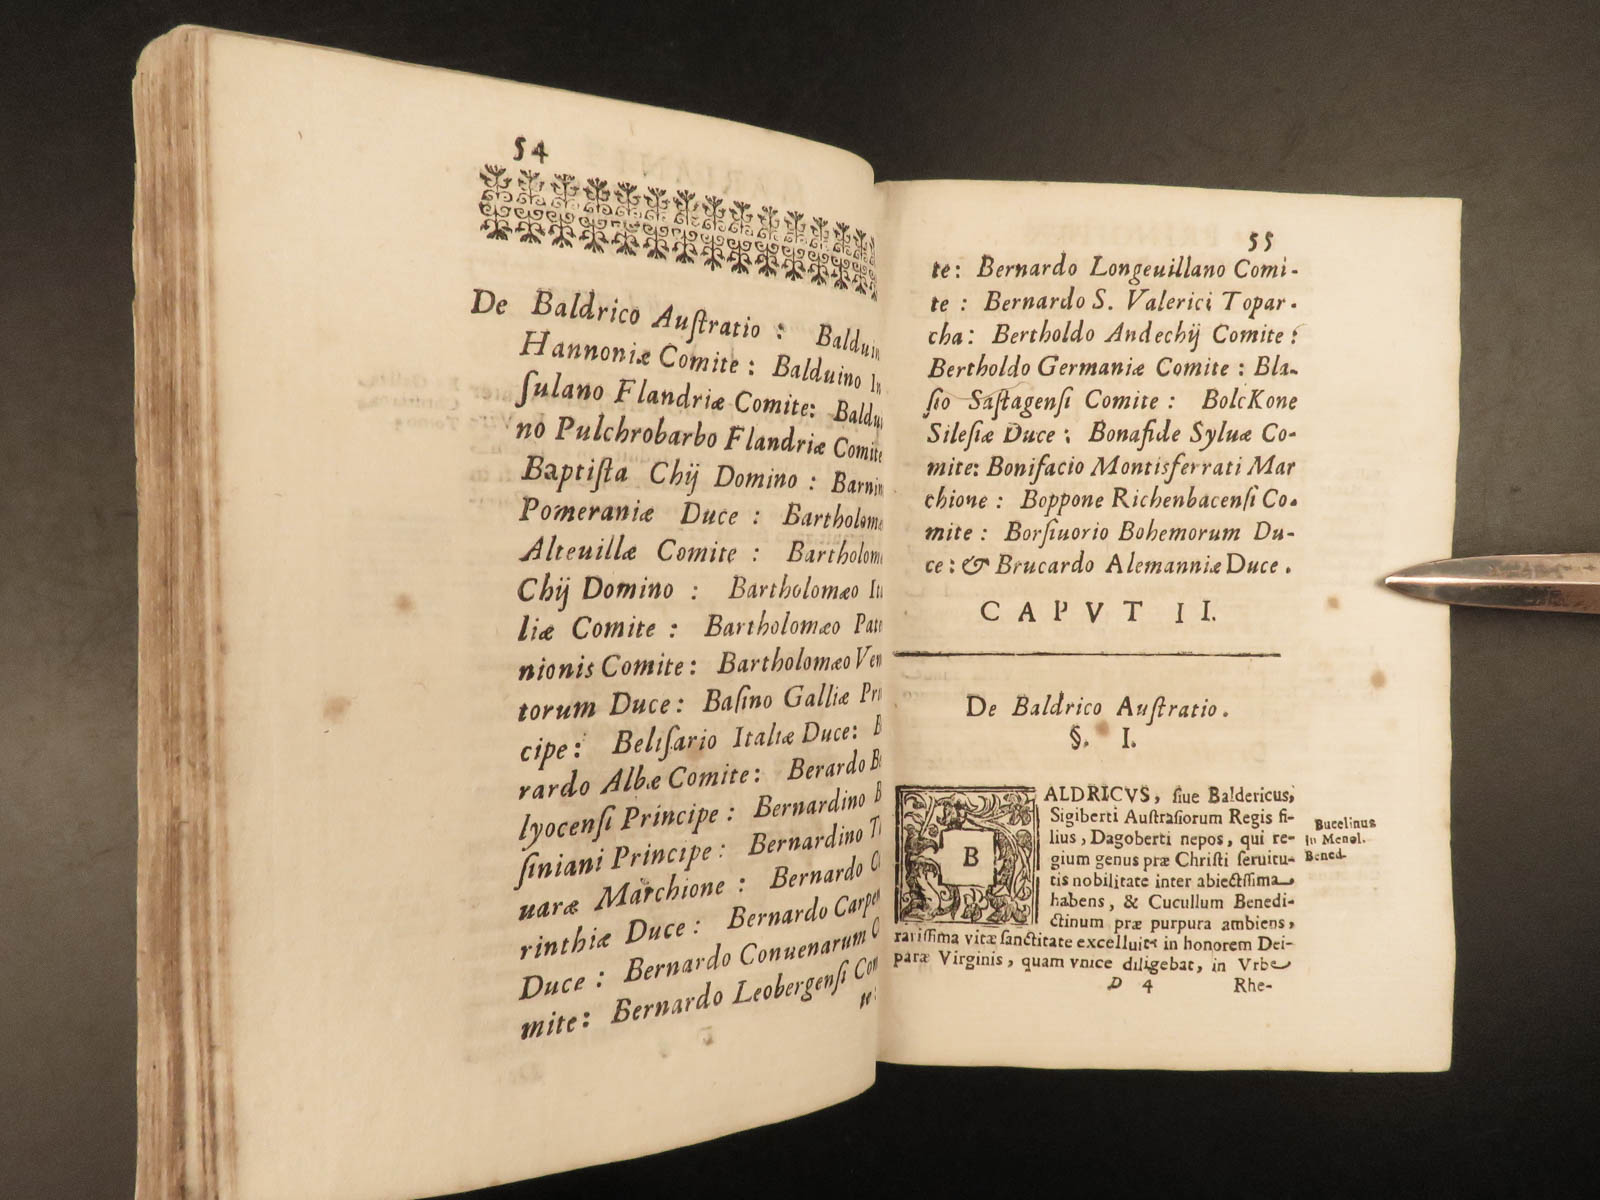 54
De Baldrico Auſtratio : Balduin
Hannoniæ Comite : Balduino In
ſulano Flandriæ Comite: Baldu
no Pulchrobarbo Flandriæ Comite
Baptiſta Chij Domino : Barnin
Pomeraniæ Duce : Bartholomæ
Alteuillæ Comite : Bartholom
Chij Domino : Bartholomæo It
liæ Comite : Bartholomæo Pat
nionis Comite : Bartholomæo Ven
torum Duce : Baſino Galliæ Pri
cipe : Beliſario Italiæ Duce: B
rardo Albæ Comite : Berardo B
lyocenſi Principe : Bernardino B
ſiniani Principe : Bernardino T
uaræ Marchione : Bernardo C
rinthiæ Duce : Bernardo Carpen
Duce : Bernardo Conuenarum C
mite : Bernardo Leobergenſi Com
te:
55
te: Bernardo Longeuillano Comi-
te : Bernardo S. Valerici Topar-
cha: Bertholdo Andechij Comite :
Bertholdo Germaniæ Comite : Bla-
ſio Saſtagenſi Comite : BolcKone
Sileſiæ Duce : Bonafide Syluæ Co-
mite: Bonifacio Montisferrati Mar
chione : Boppone Richenbacenſi Co-
mite : Borſiuorio Bohemorum Du-
ce : & Brucardo Alemanniæ Duce .
CAPVT II.
De Baldrico Auſtratio.
§. I.
BALDRICVS, ſiue Baldericus,
Sigiberti Auſtraſiorum Regis fi-
lius, Dagoberti nepos, qui re-
gium genus præ Chriſti ſeruitu-
tis nobilitate inter abiectiſſima
habens, & Cucullum Benedi-
ctinum præ purpura ambiens,
rariſſima vitæ ſanctitate excelluit: in honorem Dei-
paræ Virginis, quam vnice diligebat, in Vrbe
D 4 Rhe-
Bucelinus
in Menol.
Bened.